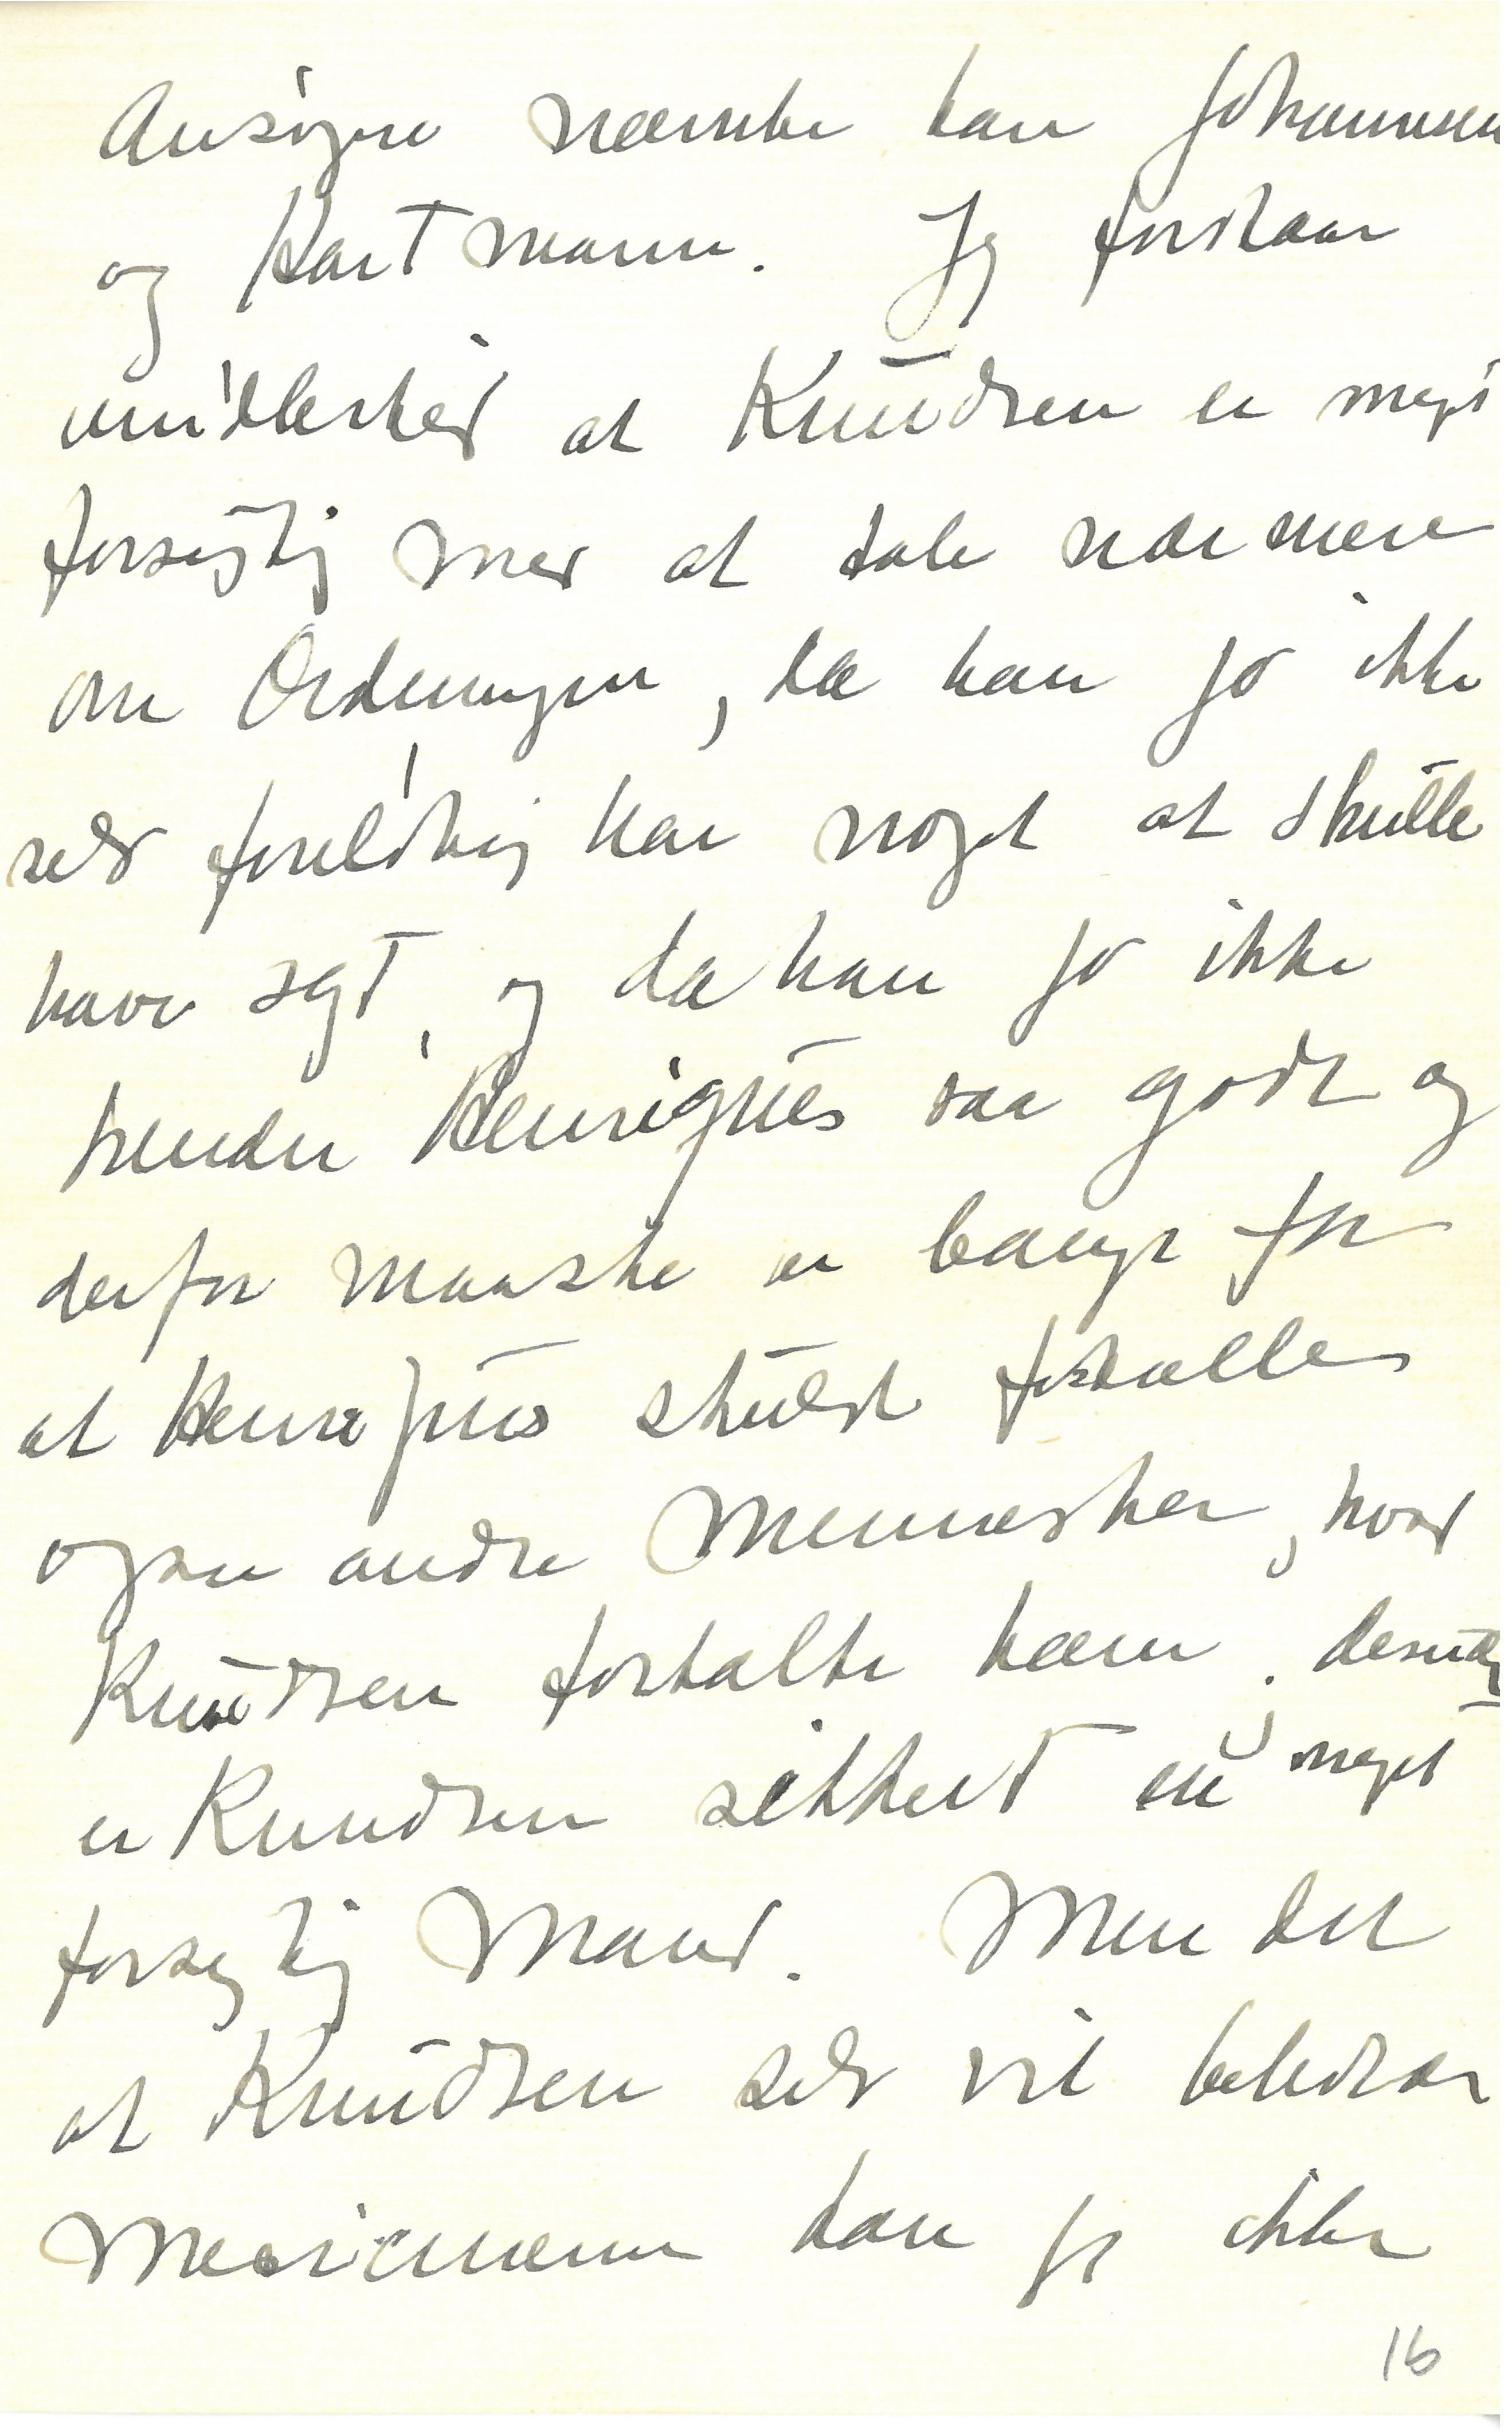 Ansøgere nævnte han Johannesen
og Hartmann. Jeg forstaar
imidlertid at Knudsen er meget
forsigtig med at tale nærmere
om Ordningen, da han jo ikke
selv foreløbig har noget at skulle
have sagt, og da han jo ikke
kender Henriques saa godt og
derfor maaske er bange for
at Henriques skulde fortælle
ogsaa andre Mennesker, hvad
Knudsen fortalte ham; desuden
er Knudsen sikkert en meget
forsigtig Mand. Men det
at Knudsen selv vil beholde
kan jo ikke
16